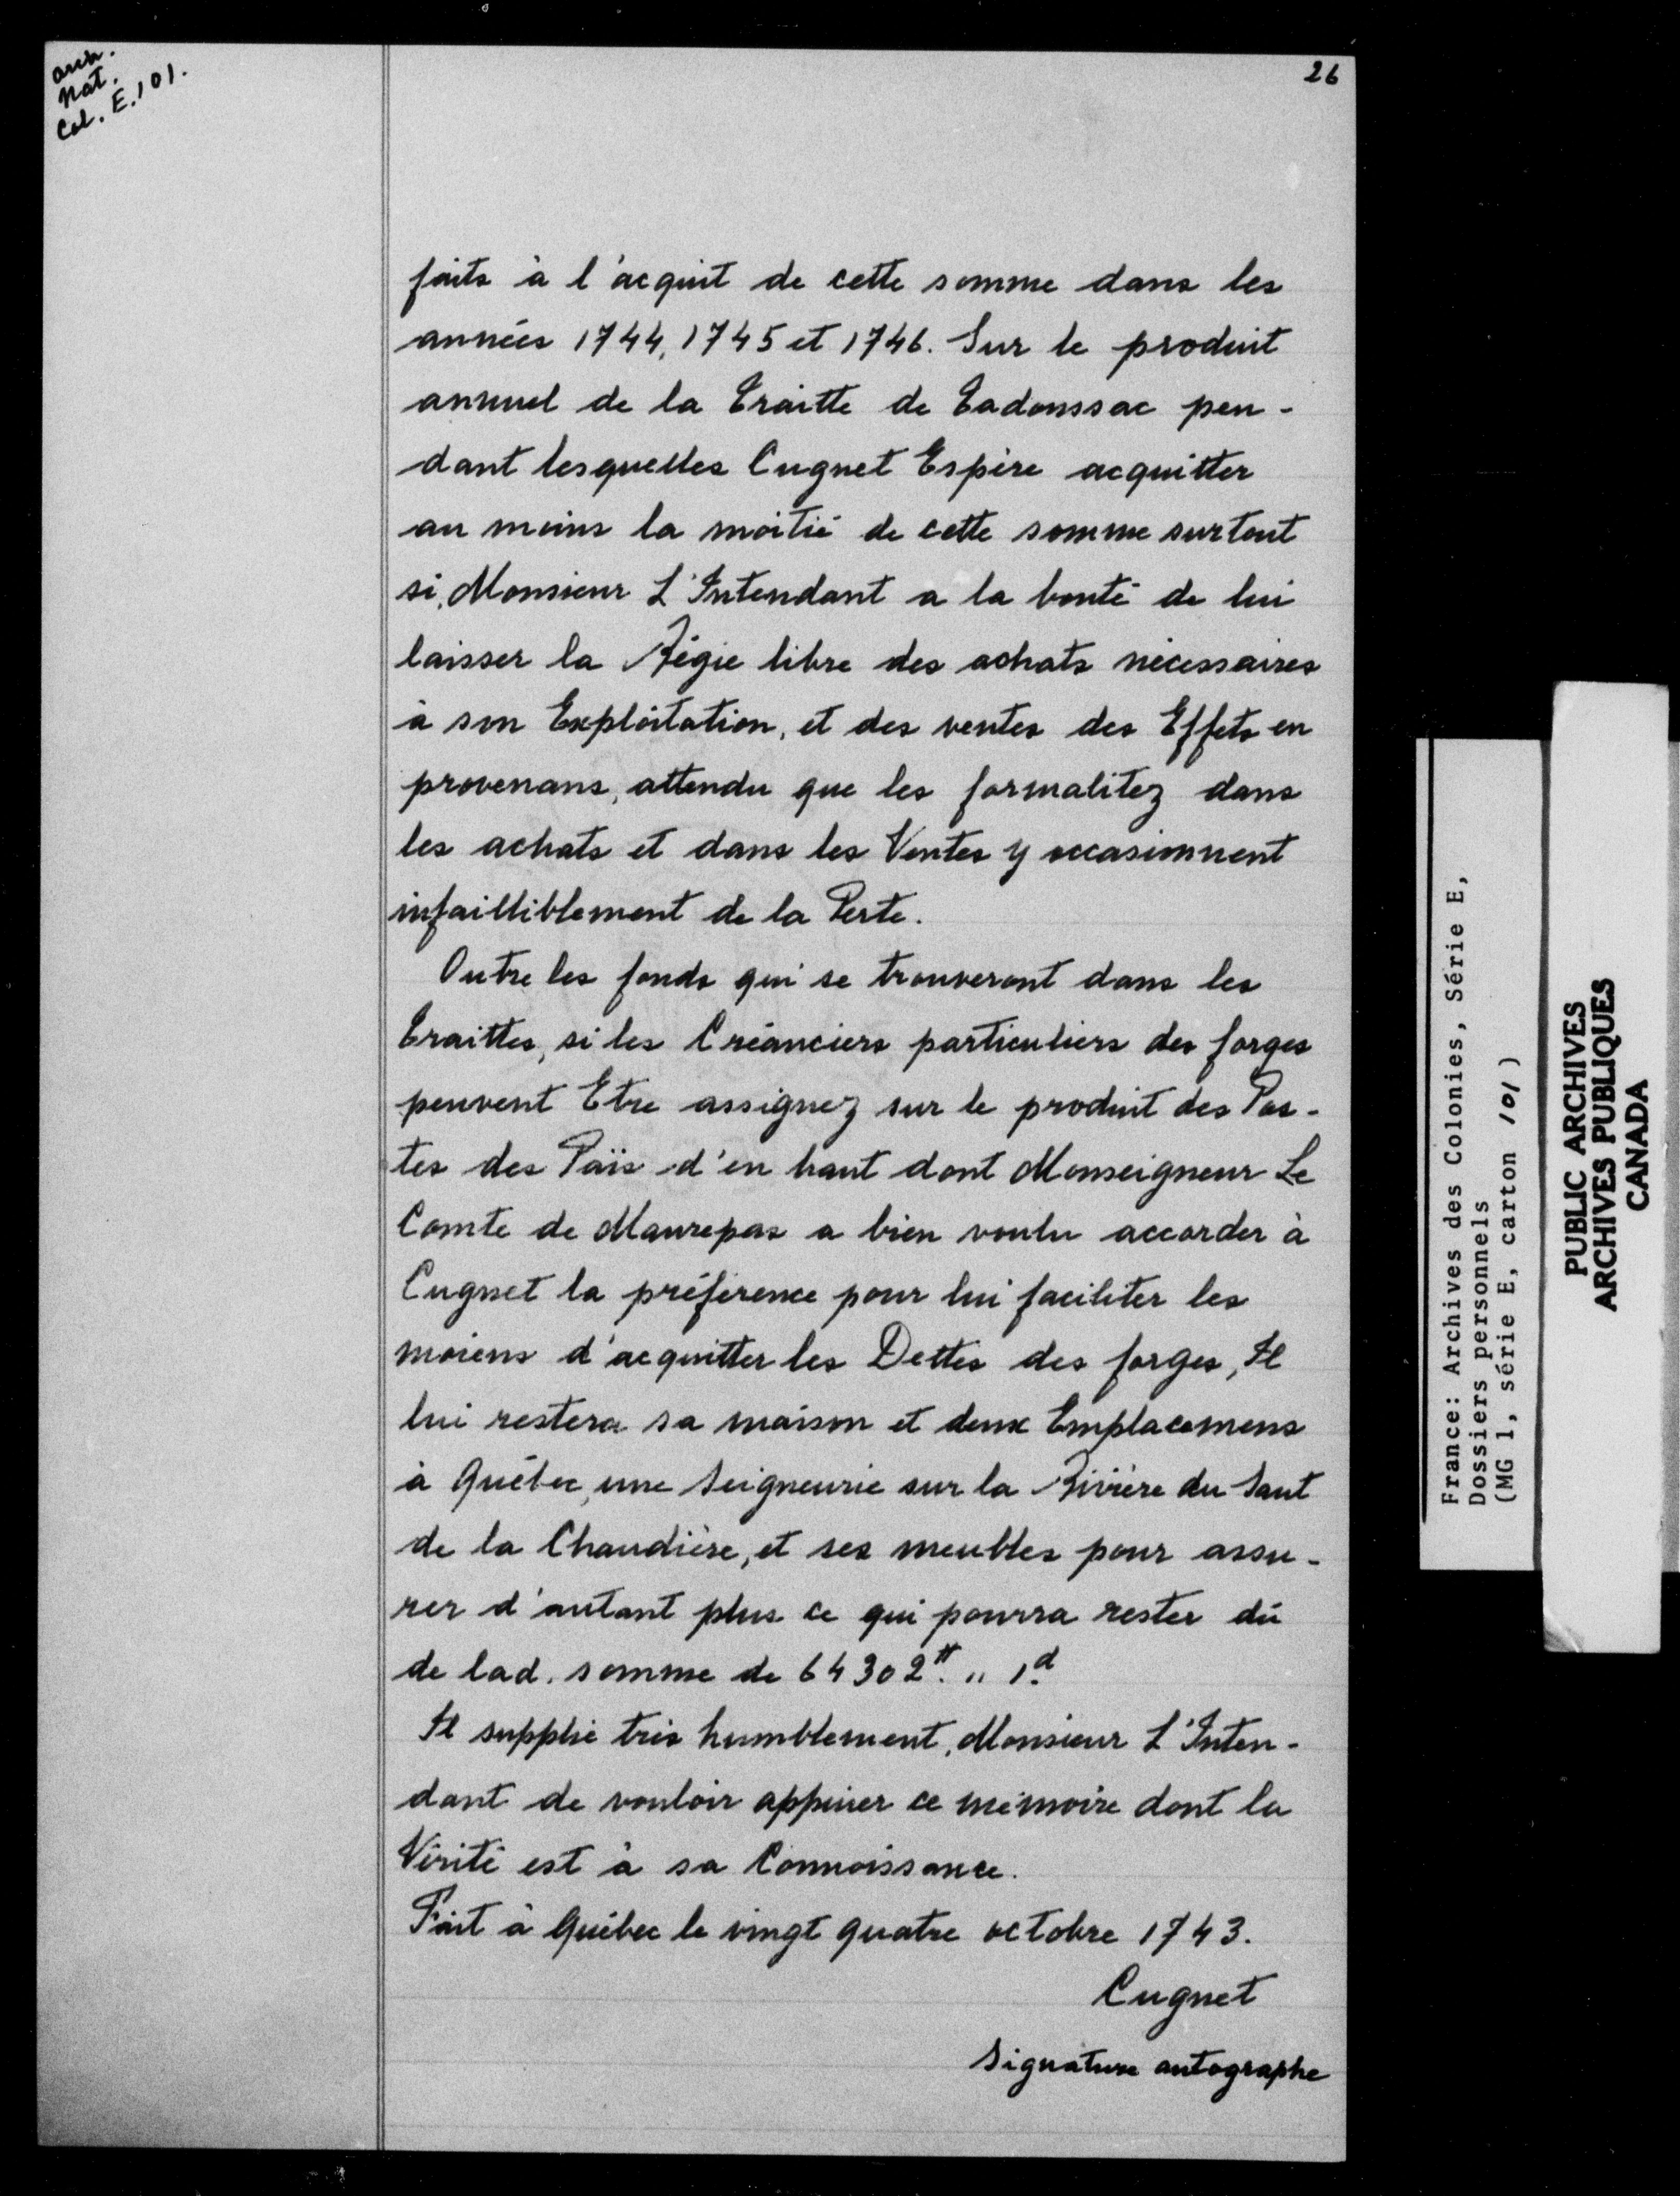 arch.
nat.
Col. E. 101.
26
faits à l'acquit de cette somme dans les
années 1744, 1745 et 1746. Sur le produit
annuel de la Traitte de Tadoussac pen-
dant lesquelles Cugnet Espère acquitter
au moins la moitié de cette somme surtout
si, Monsieur L'Intendant a la bonté de lui
laisser la Régie libre des achats nécessaires
à son Exploitation, et des ventes des Effets en
provenans, attendu que les formalitez dans
les achats et dans les Ventes y occasionnent
infailliblement de la Perte.
Outre les fonds qui se trouveront dans les
Traittes, si les Créanciers particuliers des forges
peuvent Etre assignez sur le produit des Pos-
tes des Païs d'en haut dont Monseigneur Le
Comte de Maurepas a bien voulu accorder à
Cugnet la préférence pour lui faciliter les
moiens d'acquitter les Dettes des forges, Il
lui restera sa maison et deux Emplacemens
à Québec, une Seigneurie sur la Rivière du Saut
de la Chaudière, et ses meubles pour assu-
rer d'autant plus ce qui pourra rester dû
de lad. somme de 64302₶. " 1.d
Il supplie très humblement, Monsieur L'Inten-
dant de vouloir appuier ce mémoire dont la
Vérité est à sa Connoissance.
Fait à Québec le vingt quatre octobre 1743.
Cugnet
Signature autographe
France: Archives des Colonies, Série E,
Dossiers personnels
(MG 1, série E, carton 101)
PUBLIC ARCHIVES
ARCHIVES PUBLIQUES
CANADA